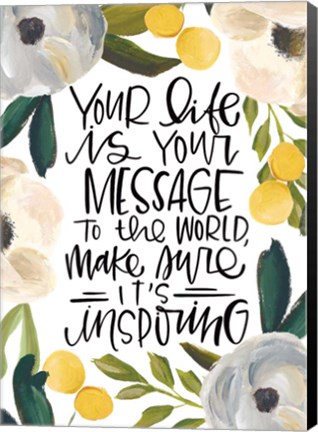 YOUR life
is YOUR
MESSAGE
To the WORLD,
make sure
IT'S
inspiring